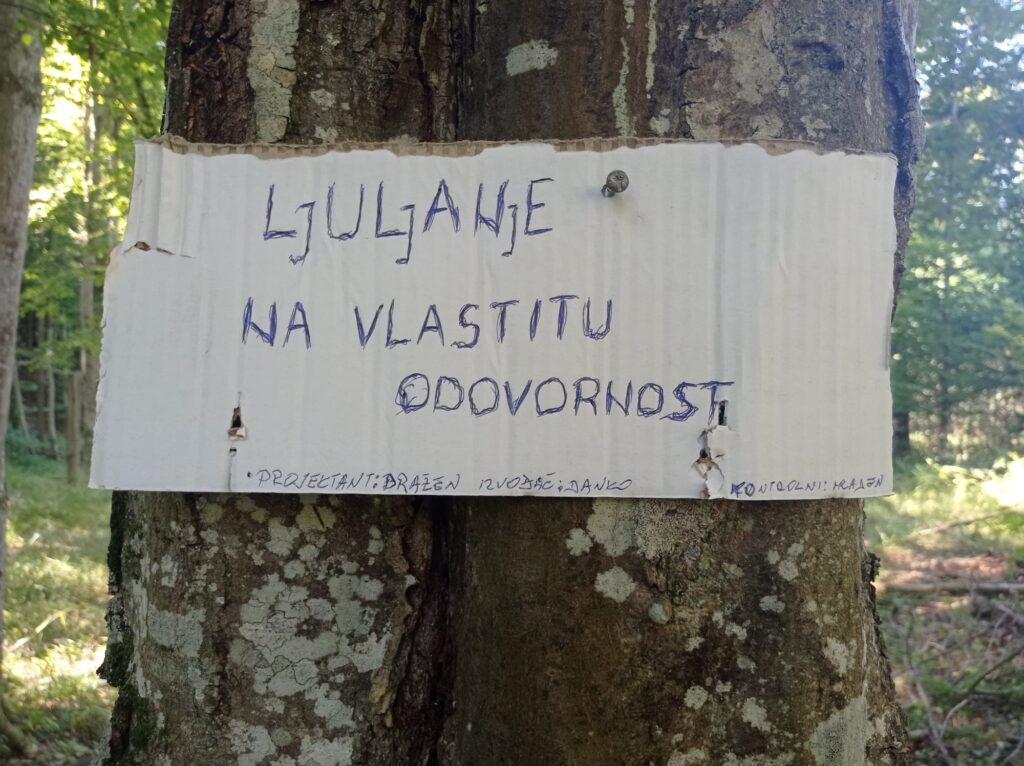 LjULjANjE
NA VLASTITU
ODOVORNOST
• PROJEKTANT: DRAŽEN IZVOĐAČ: DANKO KONTROLNI: MLADEN